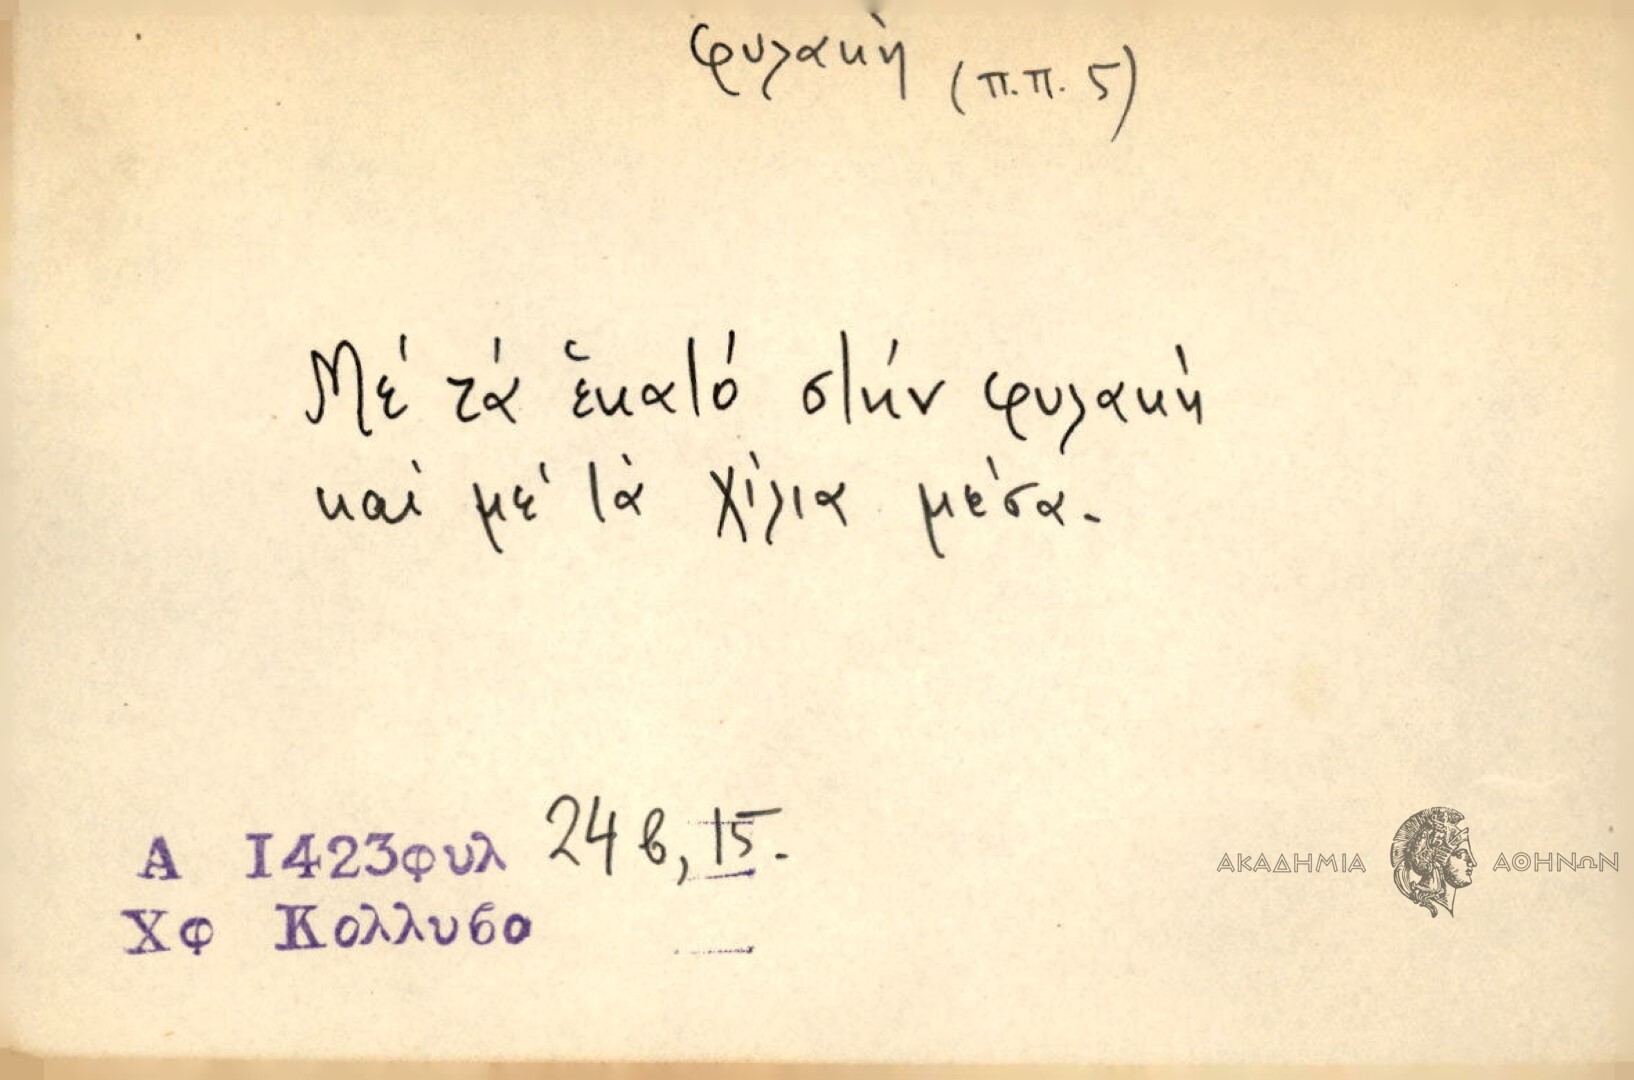 φυλακὴ (π.π. 5)
Μέ τά ἑκατό στήν φυλακὴ
καὶ μέ τὰ χίλια μέσα.
Α 1423 φυλ 24 β, 15.
Χφ Κολλυβα
ΑΚΑΔΗΜΙΑ ΑΘΗΝΩΝ